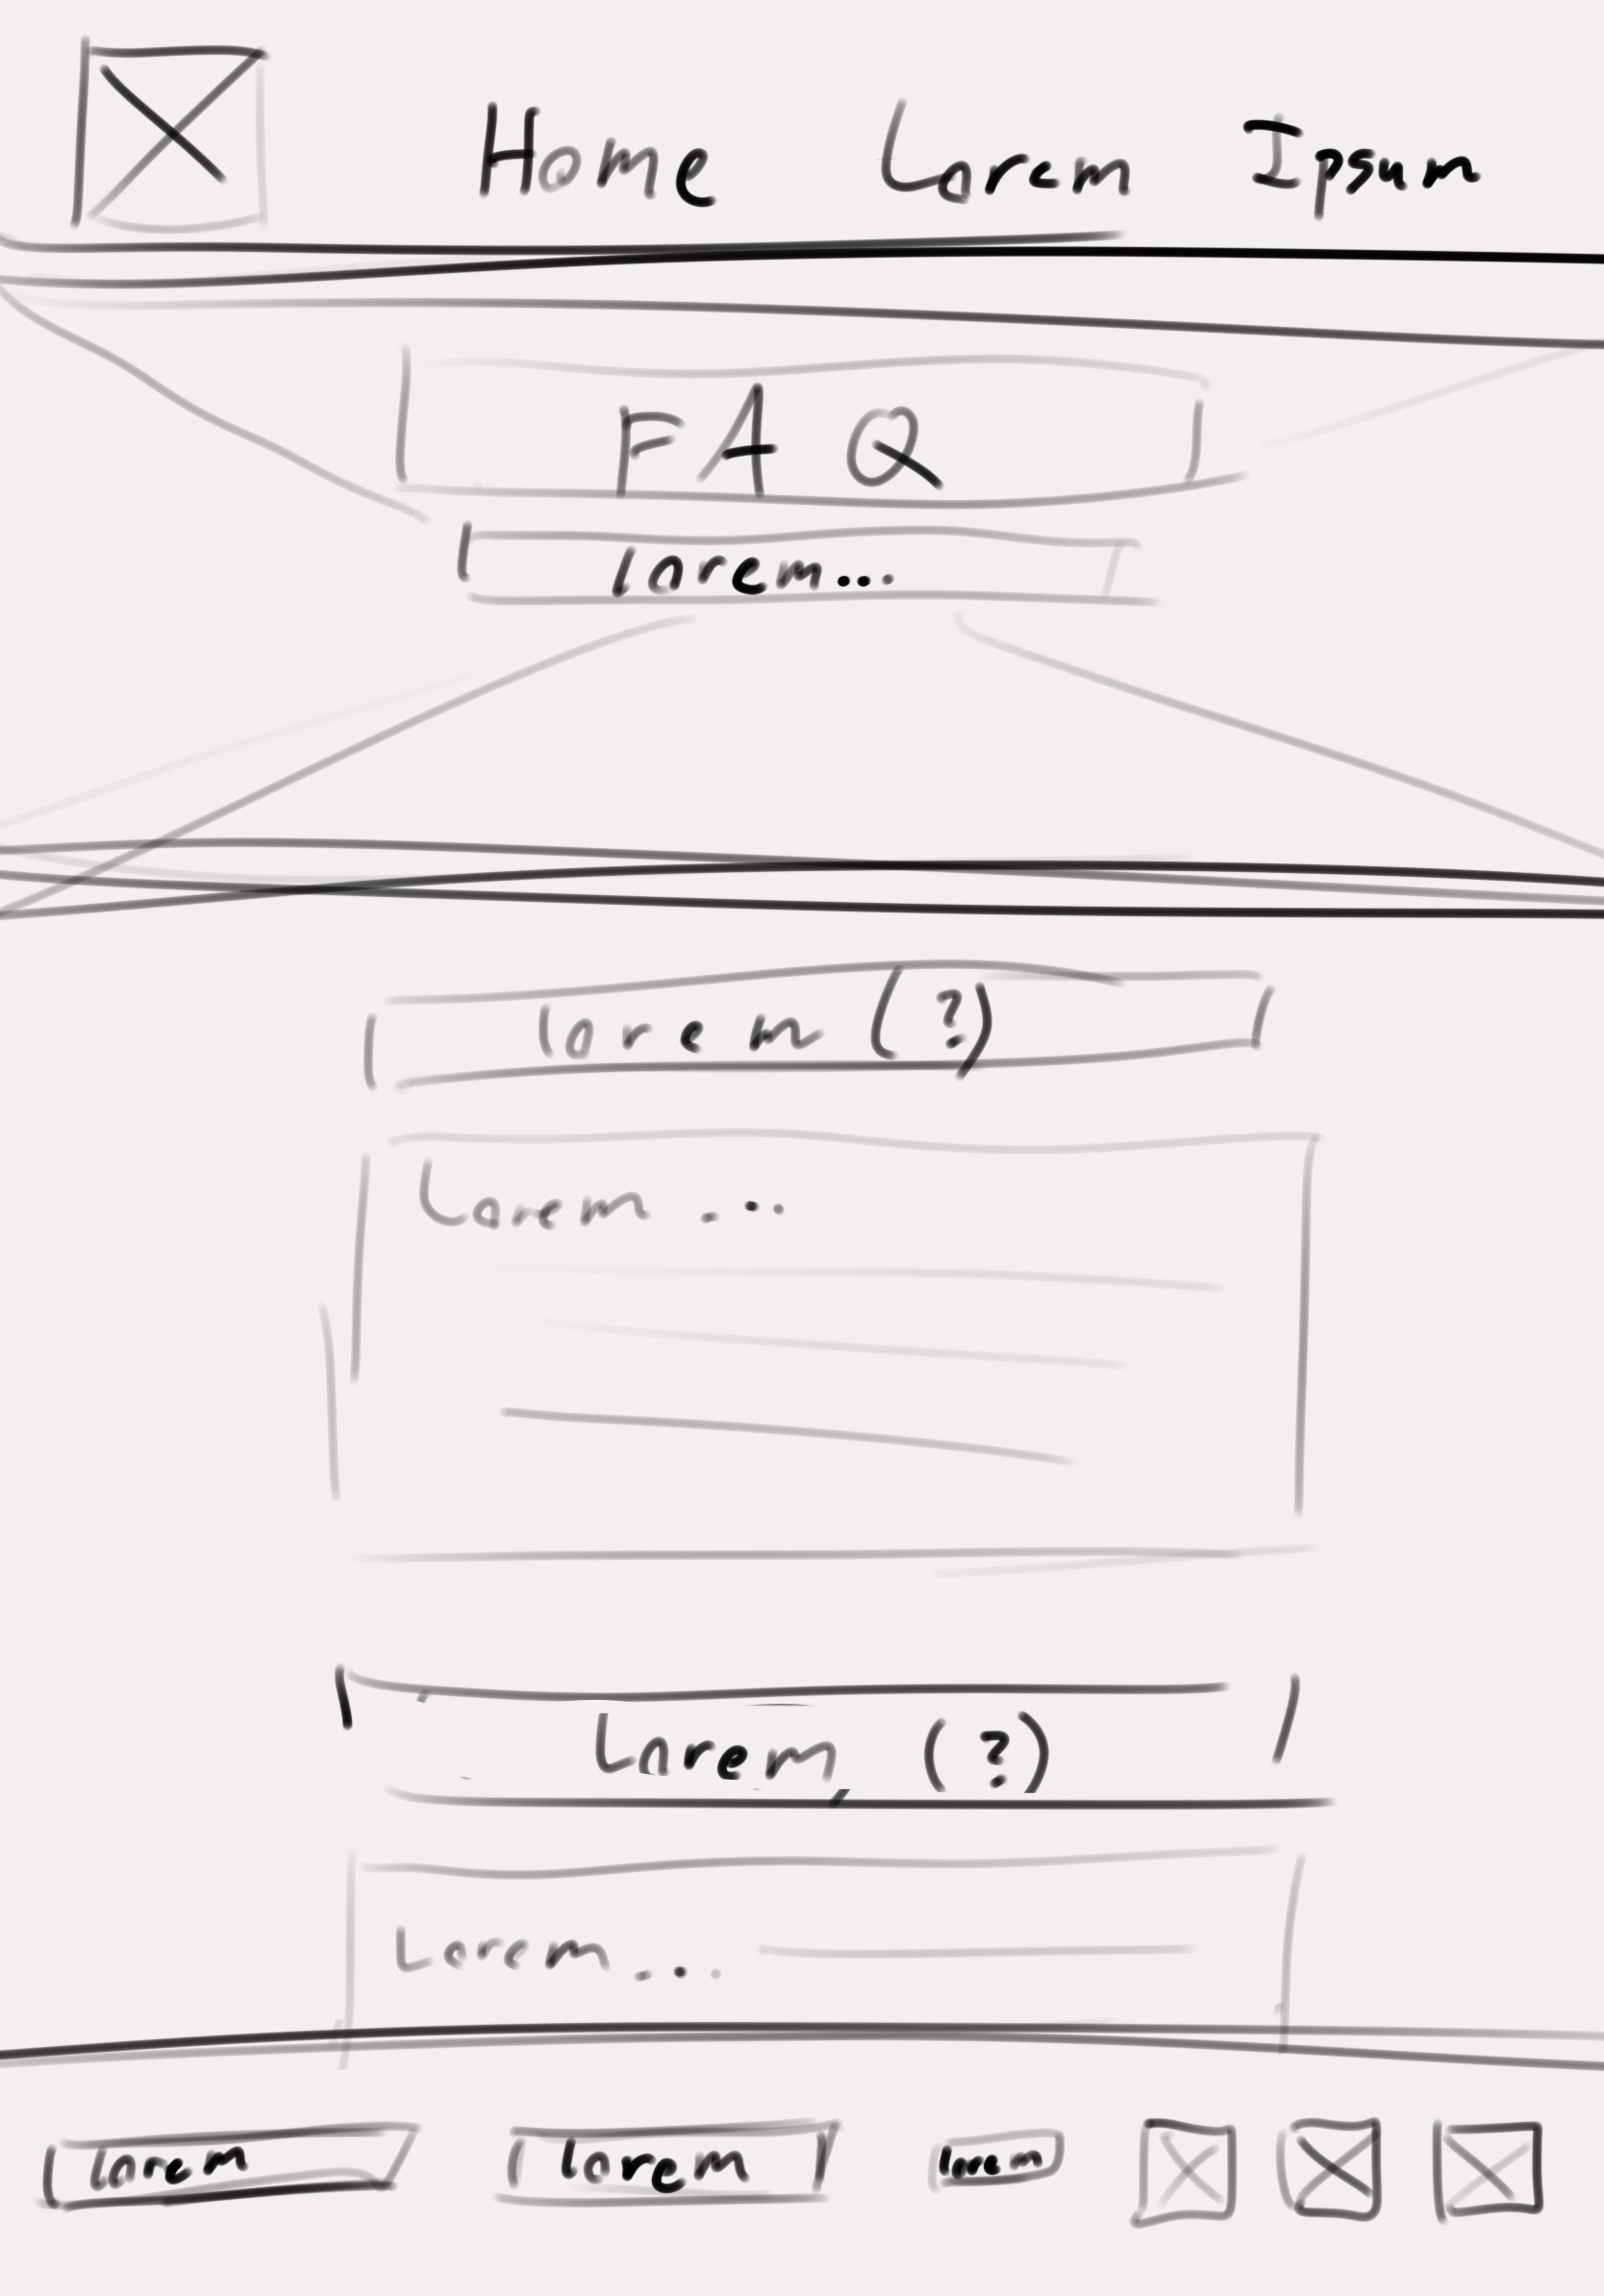 Home Lorem Ipsum
FAQ
lorem...
lorem (?)
Lorem ...
Lorem (?)
Lorem...
lorem lorem lorem